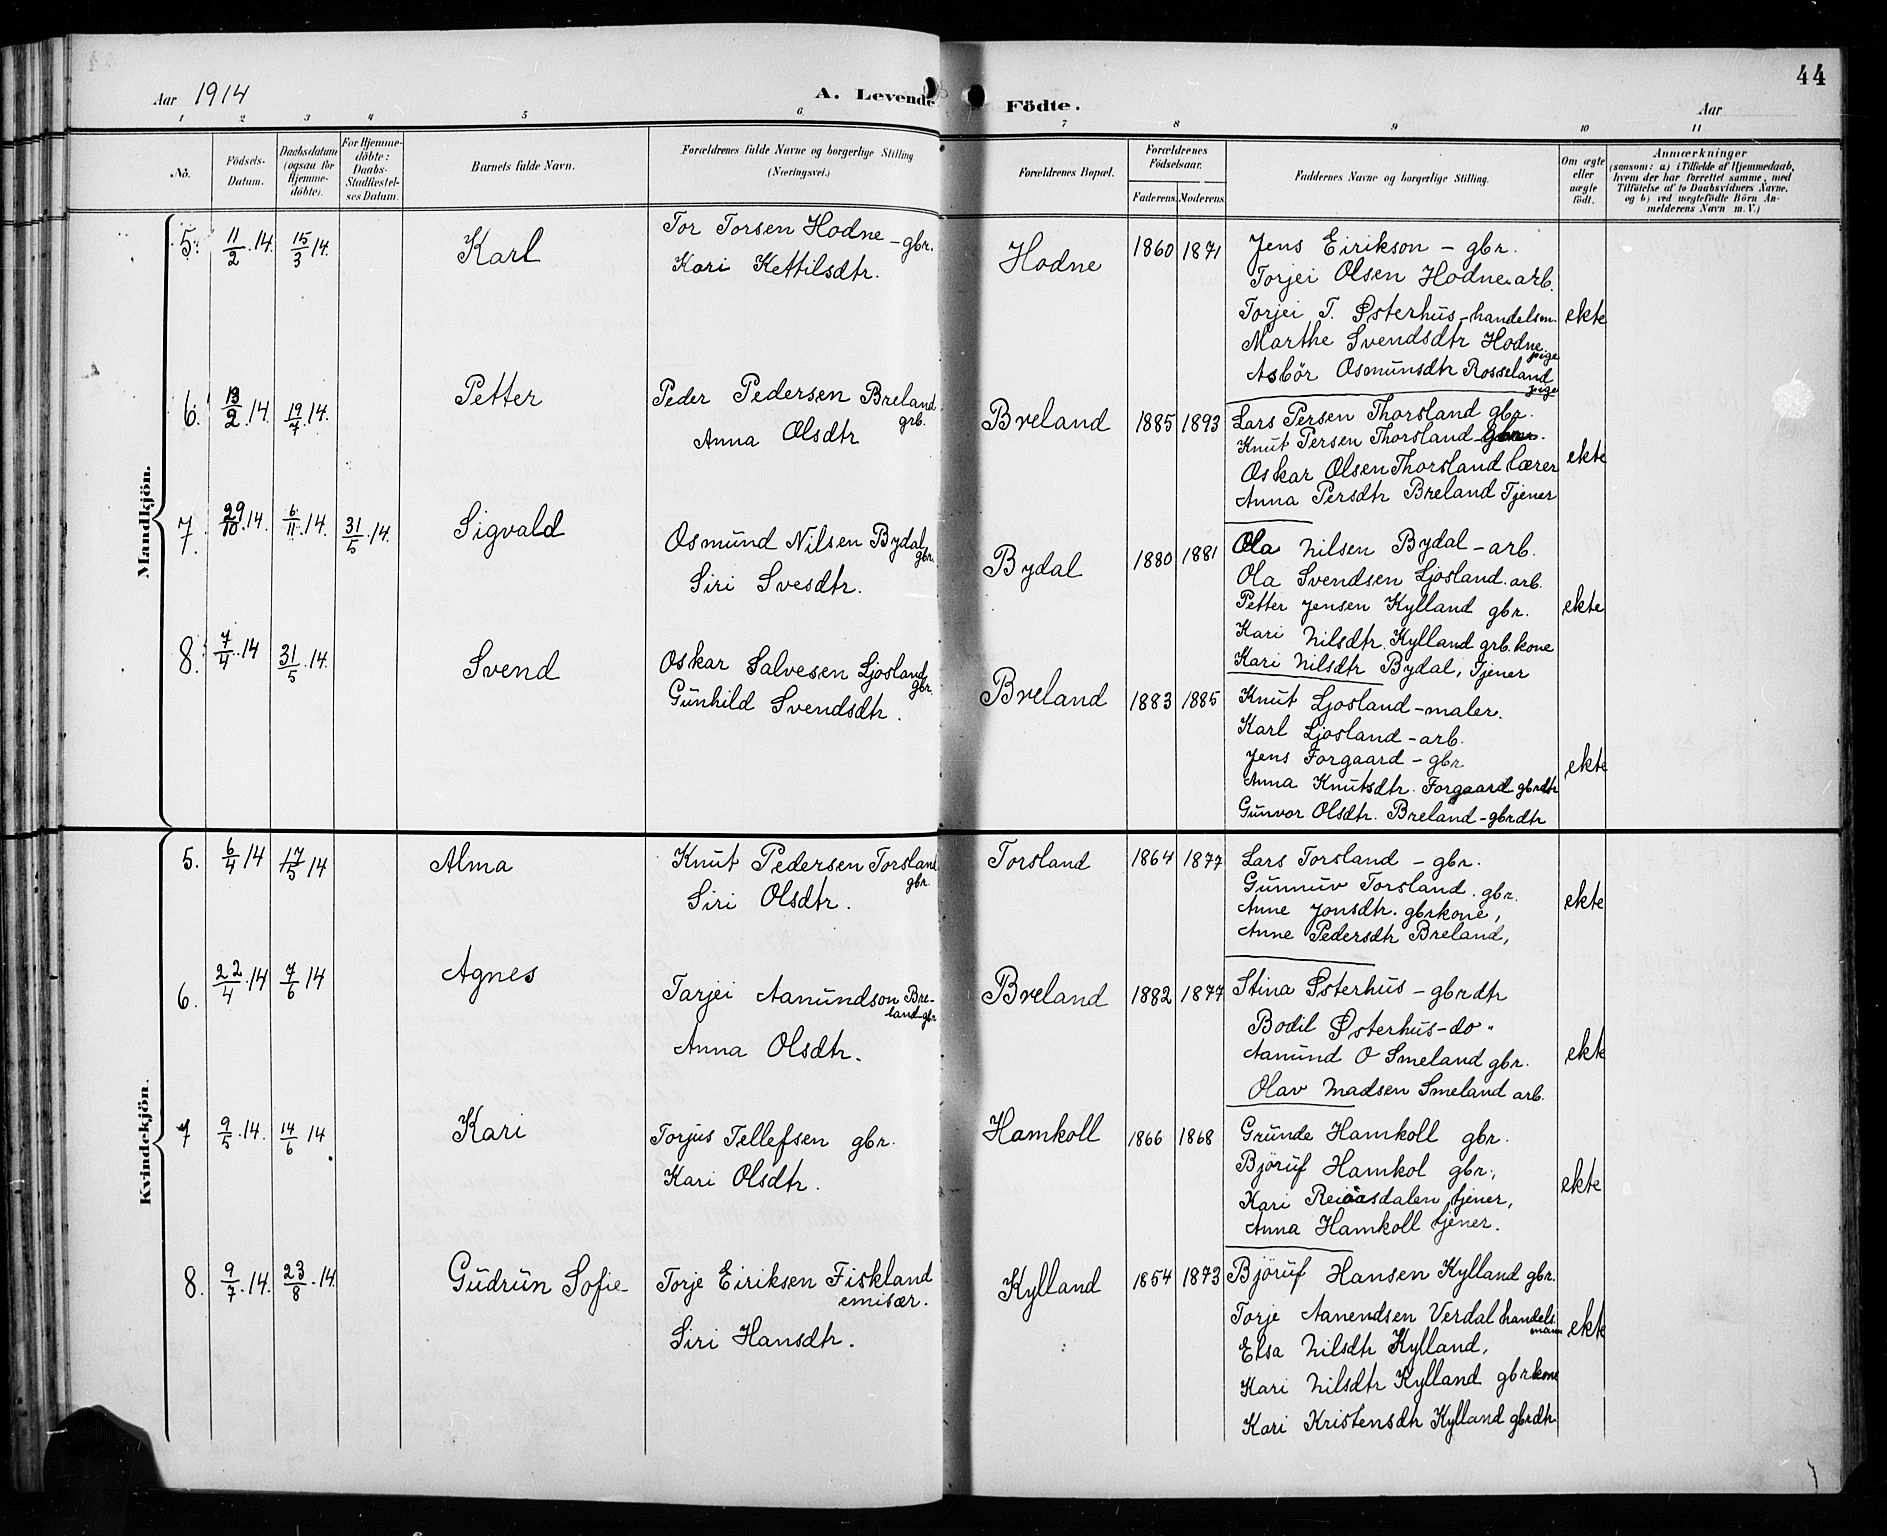 44
Aar 1914
A. Levende Födte.
Aar
1 2 3 4 5 6 7 8 9 10 11
No.
Födsels-Datum.
Daabsdatum (ogsaa for Hjemme-döbte).
For Hjemme-döbte: Daabs-Stadfæstel-ses Datum.
Barnets fulde Navn.
Forældrenes fulde Navne og borgerlige Stilling (Næringsvei.)
Forældrenes Bopæl.
Forældrenes Födselsaar.
Faderens. Moderens.
Faddernes Navne og borgerlige Stilling.
Om ægte eller uægte født.
Anmærkninger
(saasom: a) i Tilfælde af Hjemmedaab, hvem der har forrettet samme, med Tilföielse af to Daabsvidners Navne, og b) ved uægtefödte Börn An-melderens Navn m. V.)
Mandkjön.
5. 11/2.14. 15/3 14. Karl
Tor Torsen Hodne - gbr.
Kari Kettilsdtr.
Hodne 1860 1871
Jens Eirikson - gbr.
Torjei Olsen Hodne. arb.
Torjei T. Østerhus - handelsm.
Marthe Svendsdtr Hodne pige
Asbör Osmunsdtr Rosseland pige
ekte
6. 13/2 14. 19/7 14. Petter
Peder Pedersen Breland grb.
Anna Olsdtr
Breland 1885 1893
Lars Persen Thorsland gbr.
Knut Persen Thorsland
Oskar Olsen Thorsland lærer
Anna Persdtr Breland Tjener
ekte
7. 29/10.14. 6/11.14. 31/5.14. Sigvald
Osmund Nilsen Bydal gbr.
Siri Svesdtr.
Bydal 1880 1881
Ola Nilsen Bydal - arb.
Ola Svendsen Ljosland. arb.
Petter Jensen Kylland gbr.
Kari Nilsdtr. Kylland grb. kone
Kari Nilsdtr Bydal, Tjener
ekte
8. 7/4.14 31/5.14. Svend
Oskar Salvesen Ljosland gbr.
Gunhild Svendsdtr.
Breland 1883 1885
Knut Ljosland - maler.
Karl Ljosland - arb.
Jens Forgaard - gbr
Anna Knutsdtr. Forgaard gbrdtr
Gunvor Olsdtr. Breland - gbrdtr
ekte
Kvindekjön.
5. 6/4 14 17/5 14 Alma
Knut Pedersen Torsland gbr.
Siri Olsdtr.
Torsland 1864 1877
Lars Torsland - gbr.
Gunnuv Torsland. gbr.
Anne Jonsdtr. gbrkone,
Anne Pedersdtr Breland,
ekte
6. 22/4.14 7/6 14 Agnes
Tarjei Aanundson Bre-land - gbr
Anna Olsdtr.
Breland 1882 1877
Stina Østerhus - gbrdtr
Bodil Østerhus - do "
Aanund O Smeland gbr.
Olav Madsen Smeland arb.
ekte
7 9/5.14. 14/6 14 Kari
Torjus Tellefsen gbr.
Kari Olsdtr.
Hamkoll 1866 1868
Grunde Hamkoll gbr.
Björuf Hamkol gbr.,
Kari Reiaasdalen tjener,
Anna Hamkoll tjener.
ekte
8. 9/7.14. 23/8.14. Gudrun Sofie
Torje Eiriksen Fiskland emisær.
Siri Hansdtr.
Kylland 1854 1873
Björuf Hansen Kylland gbr.
Torje Aanendsen Verdal handelsmann
Elsa Nilsdtr Kylland,
Kari Nilsdtr Kylland gbrkone
Kari Kristensdtr Kylland gbrdtr.
ekte